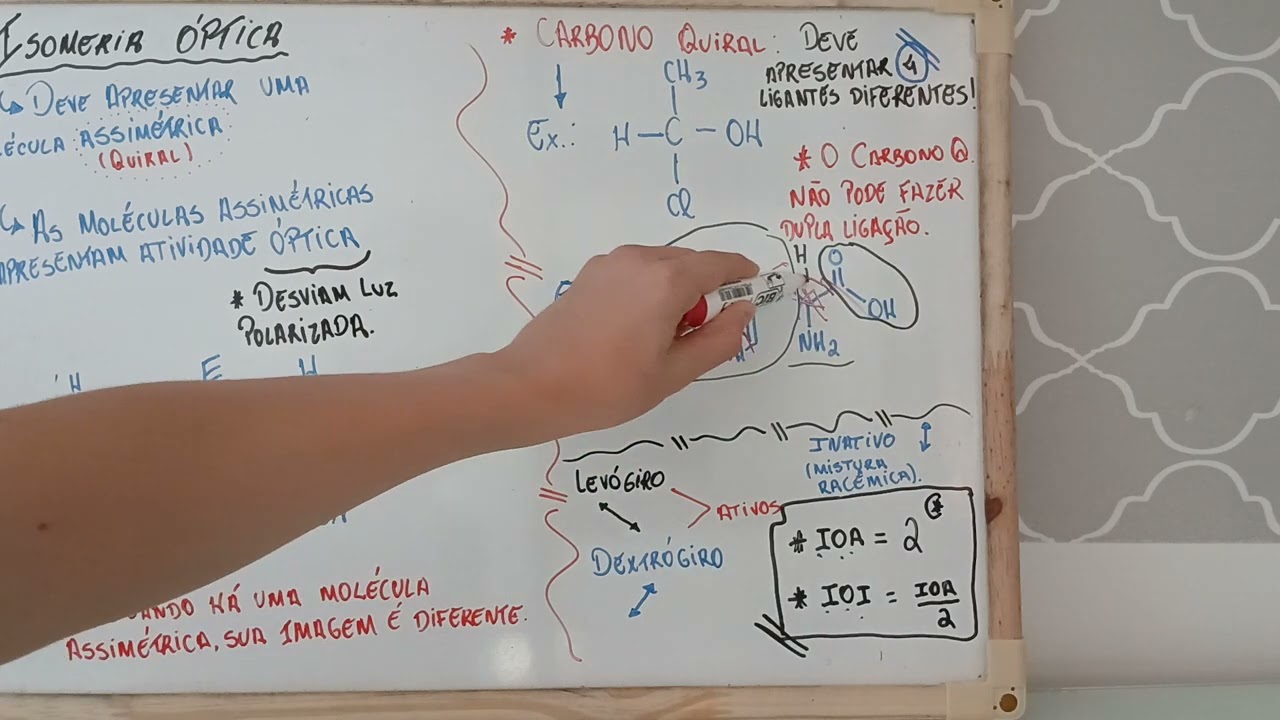 ISOMERIA ÓPTICA
↳ DEVE APRESENTAR UMA
ÉCULA ASSIMÉTRICA
(QUIRAL)
↳ AS MOLÉCULAS ASSIMÉTRICAS
APRESENTAM ATIVIDADE ÓPTICA
* DESVIAM LUZ
POLARIZADA.
H E H
ANDO HÁ UMA MOLÉCULA
ASSIMÉTRICA, SUA IMAGEM É DIFERENTE.
* CARBONO QUIRAL: DEVE
APRESENTAR 4
LIGANTES DIFERENTES!
CH3
Ex.: H-C-OH
Cl
* O CARBONO Q.
NÃO PODE FAZER
DUPLA LIGAÇÃO.
H O
OH
NH2
BIC
LEVÓGIRO
ATIVOS
DEXTRÓGIRO
INATIVO
(MISTURA
RACÊMICA).
* IOA = 2*
* IOI = IOA
2